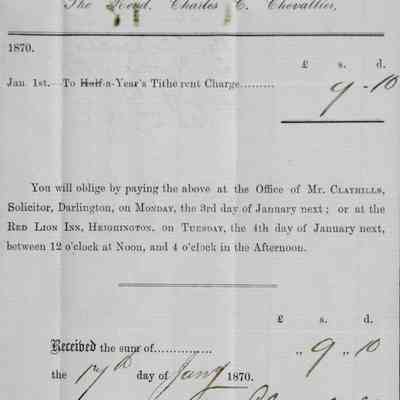 The Revd. Charles C. Chevallier,
1870.
£ s. d.
Jan 1st.—To Half-a-Year's Tithe rent Charge......... 9 - 10
You will oblige by paying the above at the Office of Mr. CLAYHILLS,
Solicitor, Darlington, on MONDAY, the 3rd day of January next; or at the
RED LION INN, HEIGHINGTON, on TUESDAY, the 4th day of January next,
between 12 o'clock at Noon, and 4 o'clock in the Afternoon.
£ s. d.
Received the sum of............... „ 9 „ 10
the 17th day of Jany 1870.